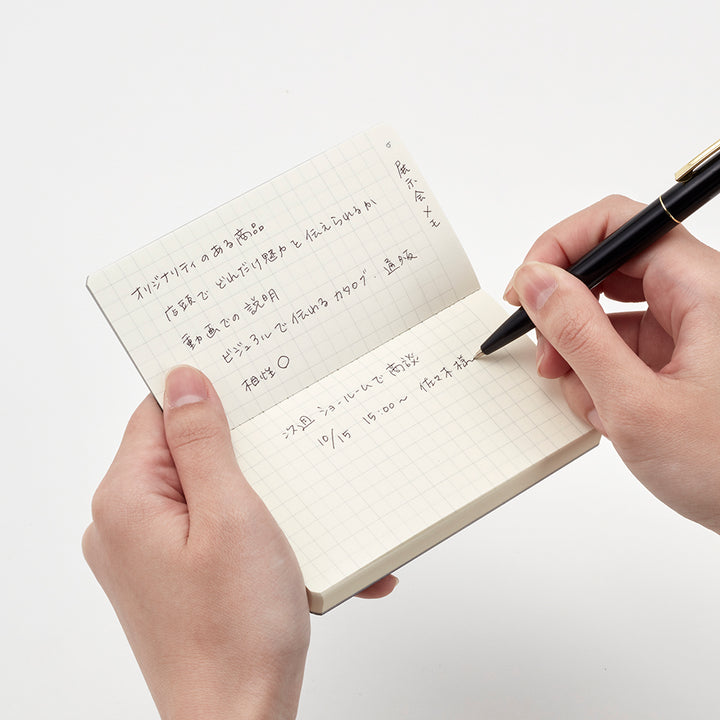 展示会メモ
オリジナリティのある商品
店頭で どれだけ魅力と伝えられるか
動画での説明
ビジュアルで伝わるカタログ・通販
相性◯
次週 ショールームで商談
10/15 15:00〜 佐々木様〜